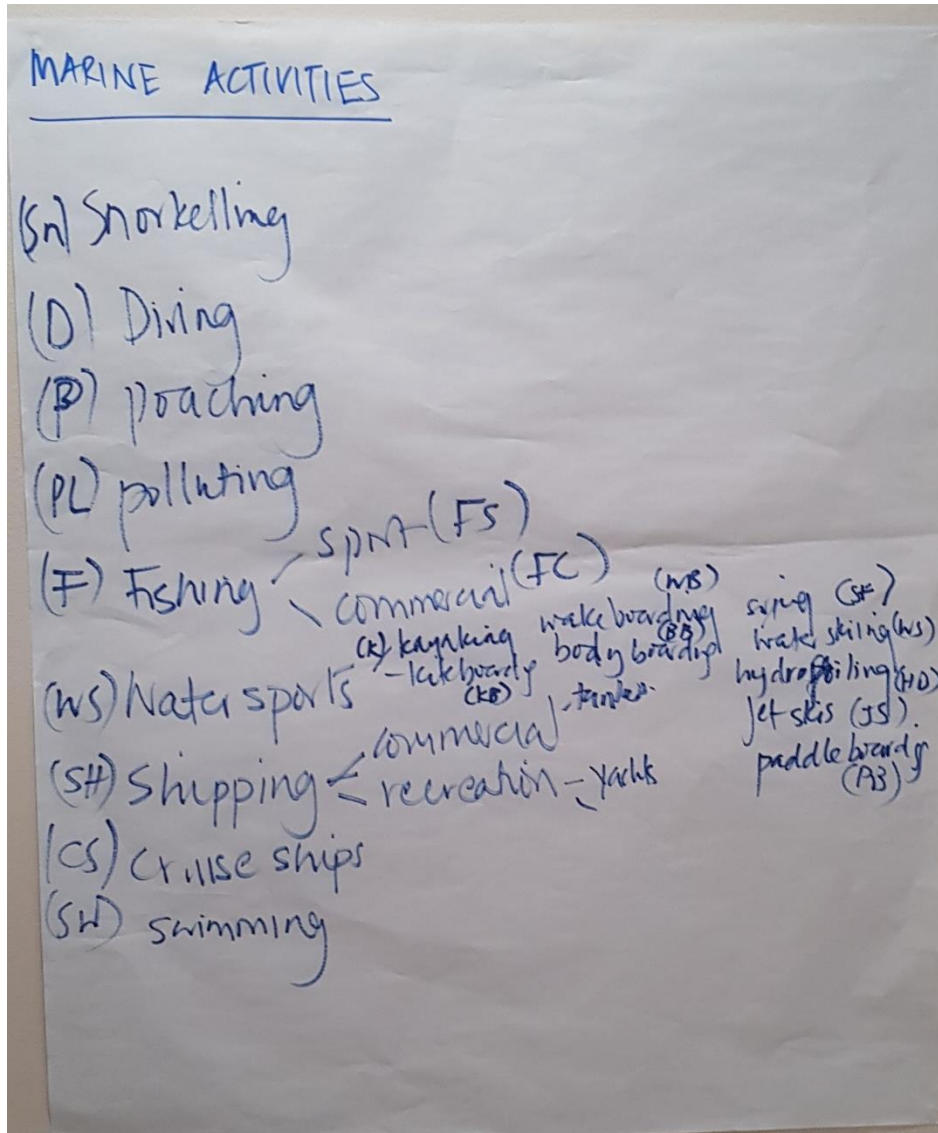 MARINE ACTIVITIES
(Sn) Snorkelling
(D) Diving
(P) poaching
(PL) polluting
(F) Fishing
sport (FS)
commercial (FC)
(WS) Water sports
(K) kayaking
- kiteboardg
(KB)
wakeboarding
(WB)
body boardig
(BB)
(SF)
water skiing (WS)
hydrofoiling
jet skis (JS).
paddle boardg
(PB)
(SH) Shipping
commercial
recreation - yachts
(CS) Cruise ships
(SW) swimming